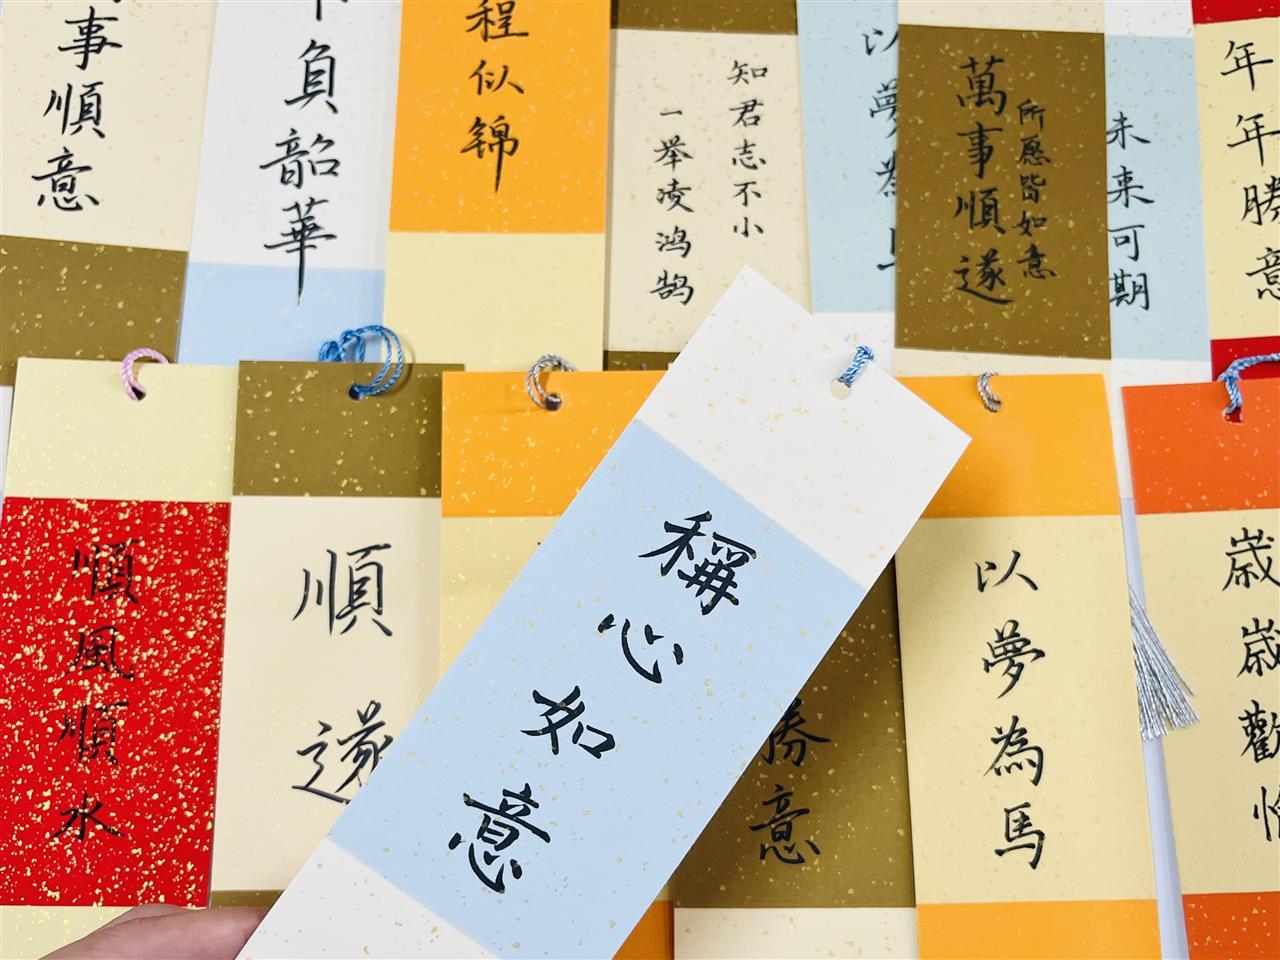 事順意
負韶華
程似锦
知君志不小
一举凌鸿鹄
以夢為
萬事順遂
所愿皆如意
未来可期
年年勝意
順風順水
順遂
稱心如意
勝意
以夢為馬
歲歲歡愉